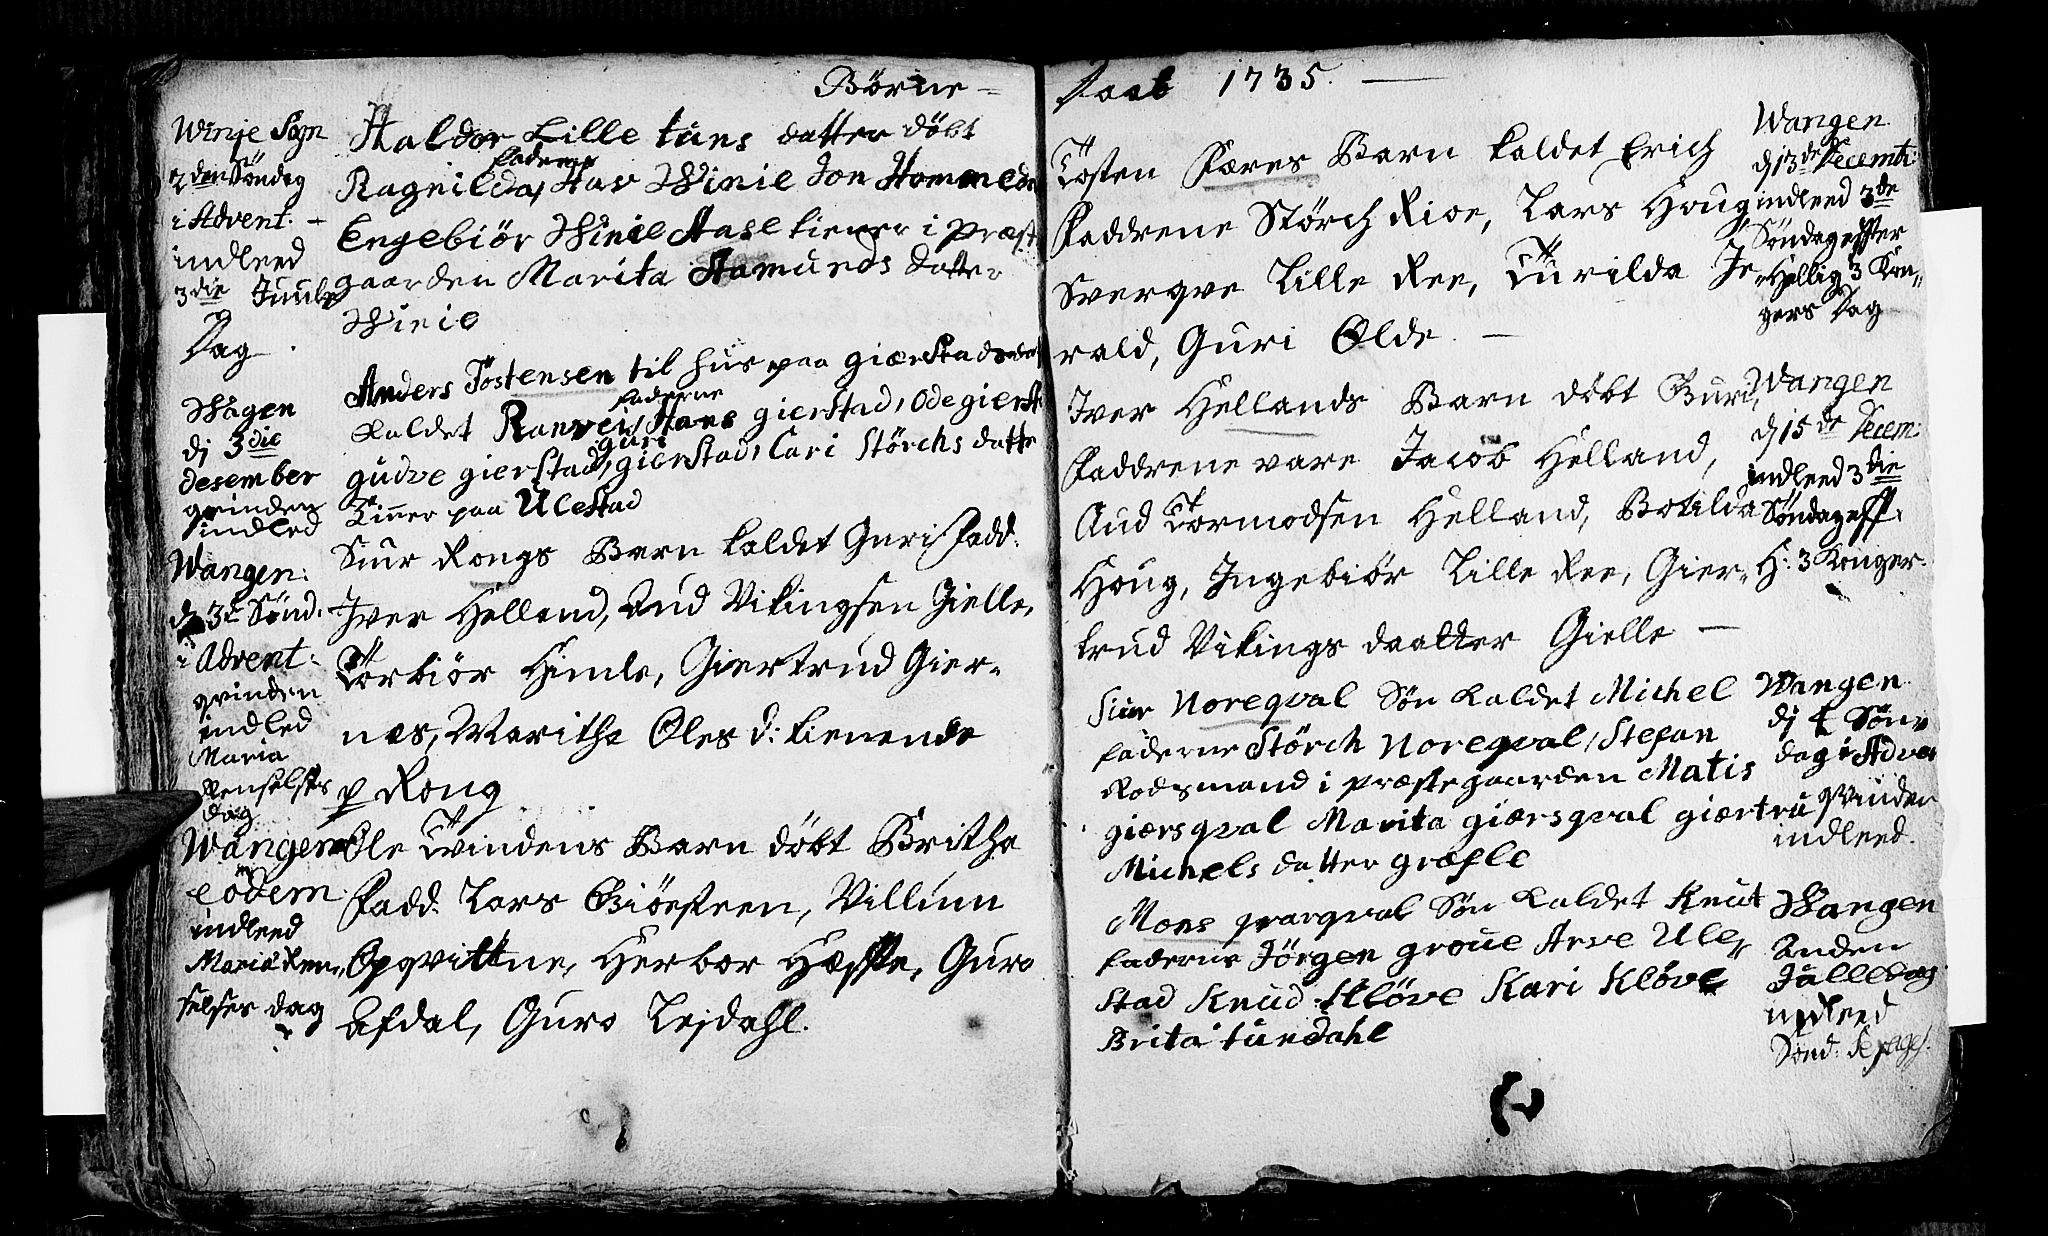 Börne-
Winje Sogn
2den Söndag
i Advent. -
indleed
3die Juule
Dag.
Haldor Lille tuns datter döbt
faderne
Ragnilda, Har Winie Jon Hommeda
Engebiör Winie Aase tiener i Præst
gaarden Marita Aamunds datter
Winie
Wagen
dj 3die
desember
qvinden
indled
Anders Töstensen til hus paa giærstad
faderne
Kaldet Ranvei, Hans gierstad, Ode gierst
guri
gudve gierstad, gierstad, Cari Störchs datte
Tiener paa Ulestad
Wangen:
d. 3de Sönd.
i Advent:
qvinden
indled
Maria
Renselses
dag
Siur Rongs Barn kaldet Guri Fadd:
Iver Helland, Aud Vikingsen Gielle,
Torbiör Himle, Giertrud Gier-
næs, Maritha Oles d: tienende
p Rong
Wangen
eodem
indleed
Mariæ Ren-
selses dag
Ole Tvindens Barn döbt Britha
Fadd. Lars Giösteen, Villum
Opqvittne, Herbor Hæfte, Guro
Afdal, Guro Lejdahl.
Daab 1735. -
Tosten Færes Barn kaldet Erich
Faddrene Störch Rioe, Lars Houg
Sverqve Lille Ree, Turilda Je-
rald, Guri Olde. -
Wangen
d 13de Decemb:
indleed 3de
Söndag efter
Hellig 3 Kon-
gers Dag
Iver Hellands Barn döbt Guri,
Faddrene vare Jacob Helland,
Aud Tormodsen Helland, Botilda
Houg, Ingebiör Lille Ree, Gier-
trud Vikings daatter Gielle -
Wangen
d 15de Decem:
indleed 3die
Söndag eff.
H: 3 Konger.
Siur Noreqval Sön Kaldet Michel
faderne Störch Noreqval, Stefan
Rodsmand i præstegaarden Matis
giærsqval Marita giærsqval giærtru
Michels datter græfle
Wangen
dj 4 Sön
dag i Adven
qvinden
indleed.
Mons qvarqval Sön Kaldet Knut
faderne Jörgen groue Arve Ule-
stad Knud Klöve Kari Klöve
Brita tundahl
Wangen
Anden
Julledag
indleed
Sönd: Sexages.